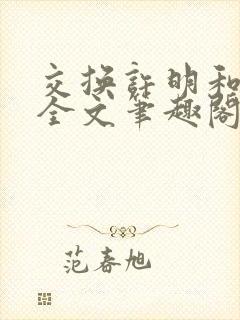 交换许明和
全文笔趣阁
范春旭